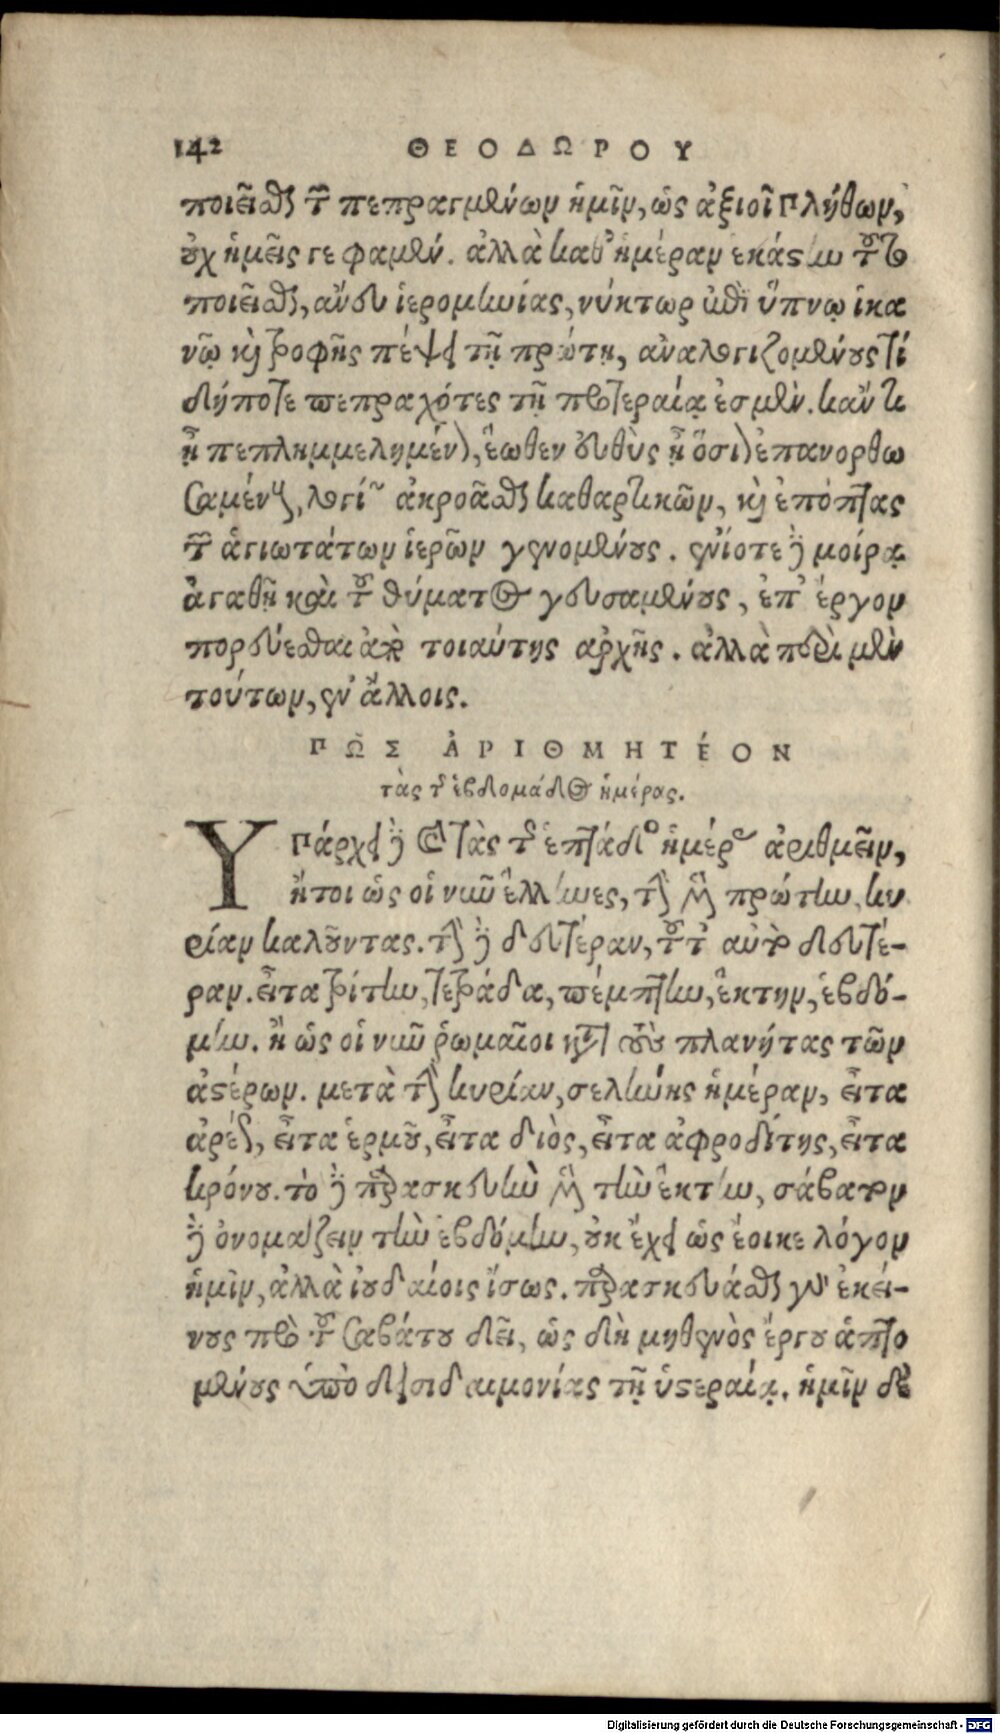 142 ΘΕΟΔΩΡΟΥ
ποιεῖσθαι τῶν πεπραγμένων ἡμῖν, ὡς ἀξιοῖ πλήθων,
οὐχ ἡμεῖς γε φαμέν. ἀλλὰ καθ' ἡμέραν ἑκάστην τοῦτο
ποιεῖσθαι, ἄνευ ἱερομηνίας, νύκτωρ ἐπὶ ὕπνῳ ἱκα
νῷ καὶ τροφῆς πέψει τῇ πρώτῃ, ἀναλογιζομένους τί
δήποτε πεπραχότες τῇ προτεραίᾳ ἐσμέν. κἄν τι
ᾖ πεπλημμελημένον, ἕωθεν εὐθὺς ᾗ ὅσιον ἐπανορθω
σαμένους, λογίων ἀκροᾶσθαι καθαρτικῶν, καὶ ἐπόπτας
τῶν ἁγιωτάτων ἱερῶν γενομένους. ἐνίοτε δὲ μοίρᾳ
ἀγαθῇ καὶ τοῦ θύματος γευσαμένους, ἐπ' ἔργον
πορεύεσθαι ἀπὸ τοιαύτης ἀρχῆς. ἀλλὰ περὶ μὲν
τούτων, ἐν ἄλλοις.
ΠΩ͂Σ ἈΡΙΘΜΗΤΈΟΝ
τὰς τῆς ἑβδομάδος ἡμέρας.
Υπάρχει δὲ καὶ τὰς τῆς ἑπτάδος ἡμέρας ἀριθμεῖν,
ἤτοι ὡς οἱ νῦν ἕλληνες, τὴν μὲν πρώτην, κυ
ρίαν καλοῦντας. τὴν δὲ δευτέραν, τοῦτ' αὐτὸ δευτέ-
ραν. εἶτα τρίτην, τετράδα, πέμπτην, ἕκτην, ἑβδό-
μην. ἢ ὡς οἱ νῦν ῥωμαῖοι κατὰ τοὺς πλανήτας τῶν
ἀστέρων. μετὰ τὴν κυρίαν, σελήνης ἡμέραν, εἶτα
ἀρέος, εἶτα ἑρμοῦ, εἶτα διὸς, εἶτα ἀφροδίτης, εἶτα
κρόνου. τὸ δὲ παρασκευὴν μὲν τὴν ἕκτην, σάβατον
δὲ ὀνομάζειν τὴν ἑβδόμην, οὐκ ἔχει ὡς ἔοικε λόγον
ἡμῖν, ἀλλὰ ἰουδαίοις ἴσως. παρασκευάσθαι γὰρ ἐκεί-
νους πρὸ τοῦ σαβάτου δεῖ, ὡς δὴ μηθενὸς ἔργου ἁπτο
μένους ὑπὸ δεισιδαιμονίας τῇ ὑστεραίᾳ. ἡμῖν δὲ
Digitalisierung gefördert durch die Deutsche Forschungsgemeinschaft - DFG